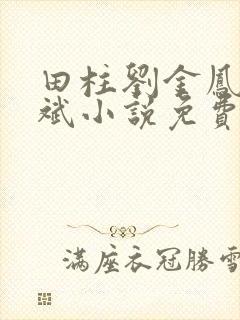 田柱劉金鳳
斌小説免費
滿座衣冠勝雪